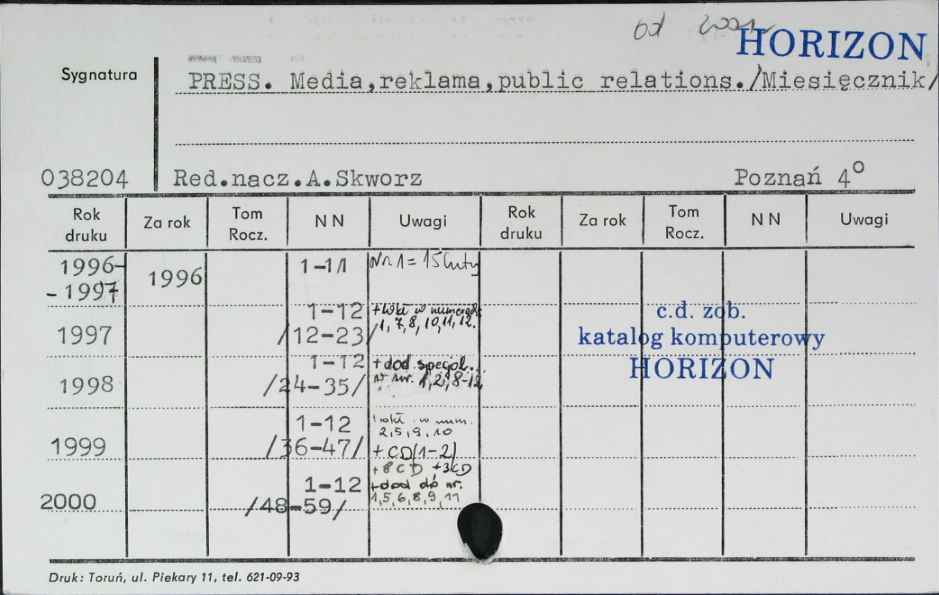 od 2001
HORIZON
Sygnatura
PRESS. Media,reklama,public relations./Miesięcznik/
038204 Red.nacz.A.Skworz Poznań 4°
Rok druku Za rok Tom Rocz. N N Uwagi Rok druku Za rok Tom Rocz. N N Uwagi
1996- 1996 1-11 Nr 1 = 15 luty
-1997
1997 1-12 +wkł w numerach
/12-23/ 1, 7, 8, 10, 11, 12.
1998 1-12 +dod specjal.
/24-35/ w nr. 1, 2, 8-12
1999 1-12 wkł w num.
2, 5, 9, 10
/36-47/ +CD(1-2)
+8CD +3CD
2000 1-12 +dod do nr.
/48-59/ 1, 5, 6, 8, 9, 11
c.d. zob.
katalog komputerowy
HORIZON
Druk: Toruń, ul. Piekary 11, tel. 621-09-93